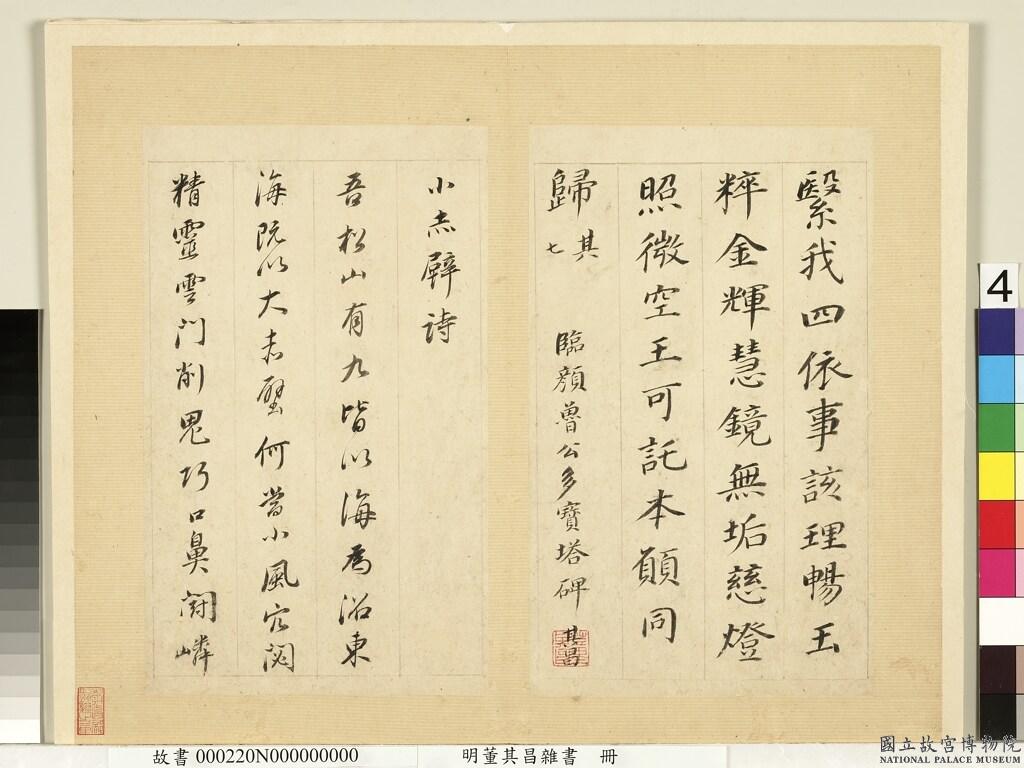 繄我四依事該理暢玉
粹金輝慧鏡無垢慈燈
照微空王可託本願同
歸其七
臨顏魯公多寶塔碑 其昌
小赤壁詩
吾松山有九皆以海為沼東
海既以大赤壁何當小風穴閟
精靈雲門削鬼巧口鼻闘嶙
4
故書 000220N000000000 明董其昌雜書 冊
國立故宮博物院
NATIONAL PALACE MUSEUM